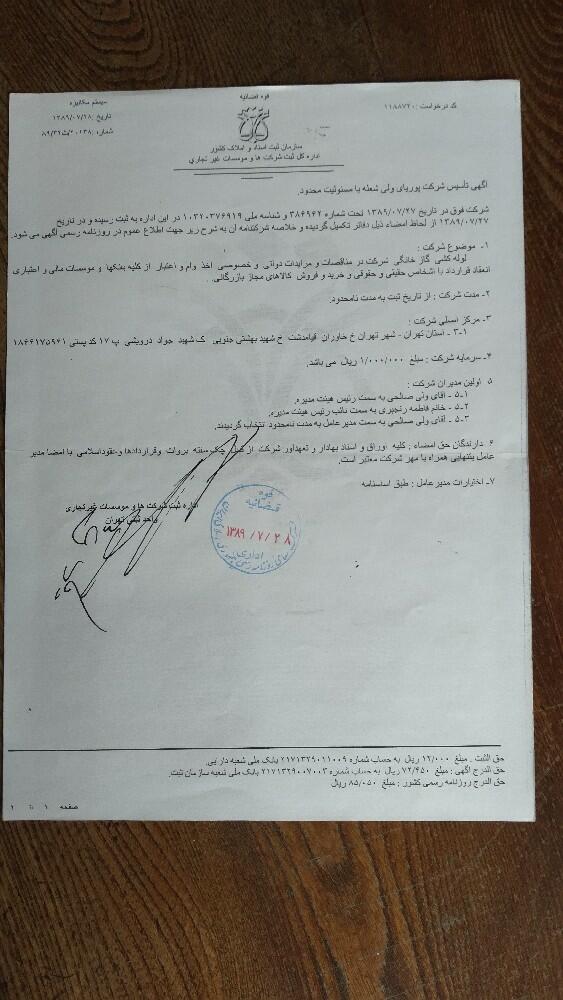 قوه قضائیه
سیستم مکانیزه
کد درخواست : ۱۱۸۸۷۲۰
تاریخ :۱۳۸۹/۰۷/۲۸
سازمان ثبت اسناد و املاک کشور
اداره کل ثبت شرکت ها و موسسات غیر تجاری
آگهی تأسیس شرکت پوریای ولی شعله با مسئولیت محدود.
شرکت فوق در تاریخ ۱۳۸۹/۰۷/۲۷ تحت شماره ۳۸۶۹۶۲ و شناسه ملی ۱۰۳۲۰۳۷۶۹۱۹ در این اداره به ثبت رسیده و در تاریخ
۱۳۸۹/۰۷/۲۷ از لحاظ امضاء ذیل دفاتر تکمیل گردیده و خلاصه شرکتنامه آن به شرح زیر جهت اطلاع عموم در روزنامه رسمی آگهی می شود.
۱- موضوع شرکت :
لوله کشی گاز خانگی شرکت در مناقصات و مزایدات دولتی و خصوصی اخذ وام و اعتبار از کلیه بانکها و موسسات مالی و اعتباری
انعقاد قرارداد با اشخاص حقیقی و حقوقی و خرید و فروش کالاهای مجاز بازرگانی.
۲- مدت شرکت : از تاریخ ثبت به مدت نامحدود.
۳- مرکز اصلی شرکت :
۳-۱ استان تهران - شهر تهران خ خاوران قیامدشت خ شهید بهشتی جنوبی ک شهید جواد درویشی پ ۱۷ کد پستی ۱۸۶۶۱۷۵۹۴۱
۴- سرمایه شرکت : مبلغ ۱/۰۰۰/۰۰۰ ریال می باشد.
۵ اولین مدیران شرکت :
۵-۱ آقای ولی صالحی به سمت رئیس هیئت مدیره.
۵-۲ خانم فاطمه رنجبری به سمت نائب رئیس هیئت مدیره.
۵-۳ آقای ولی صالحی به سمت مدیر عامل به مدت نامحدود انتخاب گردیدند.
۶ دارندگان حق امضاء : کلیه اوراق و اسناد بهادار و تعهدآور شرکت از قبیل چک سفته بروات وقراردادها وعقوداسلامی با امضا مدیر
عامل بتنهایی همراه با مهر شرکت معتبر است.
۷- اختیارات مدیر عامل : طبق اساسنامه
اداره ثبت شرکت ها و موسسات غیرتجاری
واحد ثبتی تهران
قوه
قضائیه
۱۳۸۹ / ۷ / ۲۸
اداری
حق الثبت . مبلغ ۱۲/۰۰۰ ریال به حساب شماره ۲۱۷۱۳۲۹۰۱۱۰۰۹ بانک ملی شعبه دارایی.
حق الدرج آگهی : مبلغ ۷۲/۴۵۰ ریال به حساب شماره ۲۱۷۱۳۲۹۰۰۷۰۰۳ بانک ملی شعبه سازمان ثبت.
حق الدرج روزنامه رسمی کشور : مبلغ ۸۵/۰۵۰ ریال
صفحه ۱ تا ۱